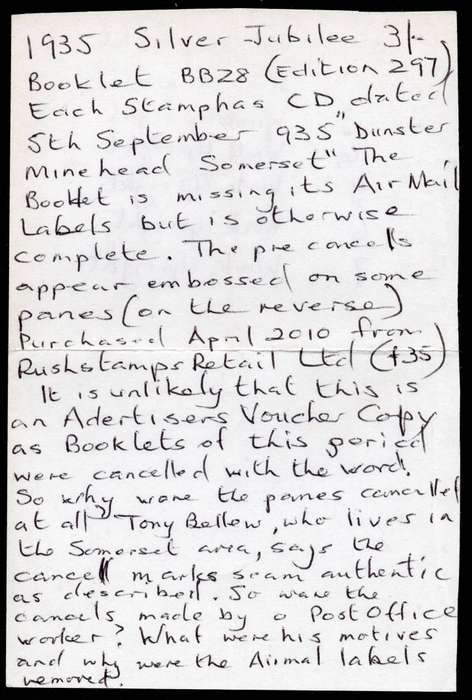 1935 Silver Jubilee 3/-
Booklet BB28 (Edition 297)
Each Stamp has CD, dated
5th September 935 "Dunster
Minehead Somerset" The
Booklet is missing its Air Mail
Labels but is otherwise
complete. The pre cancells
appear embossed on some
panes (on the reverse)
Purchased April 2010 from
Rushstamps Retail Ltd (£35)
It is unlikely that this is
an Adertisers Voucher Copy
as Booklets of this period
were cancelled with the word.
So why were the panes cancelled
at all? Tony Bellew, who lives in
the Somerset area, says the
cancell marks seam authentic
as described. So were the
cancels made by a Post Office
worker? What were his motives
and why were the Airmal labels
removed.